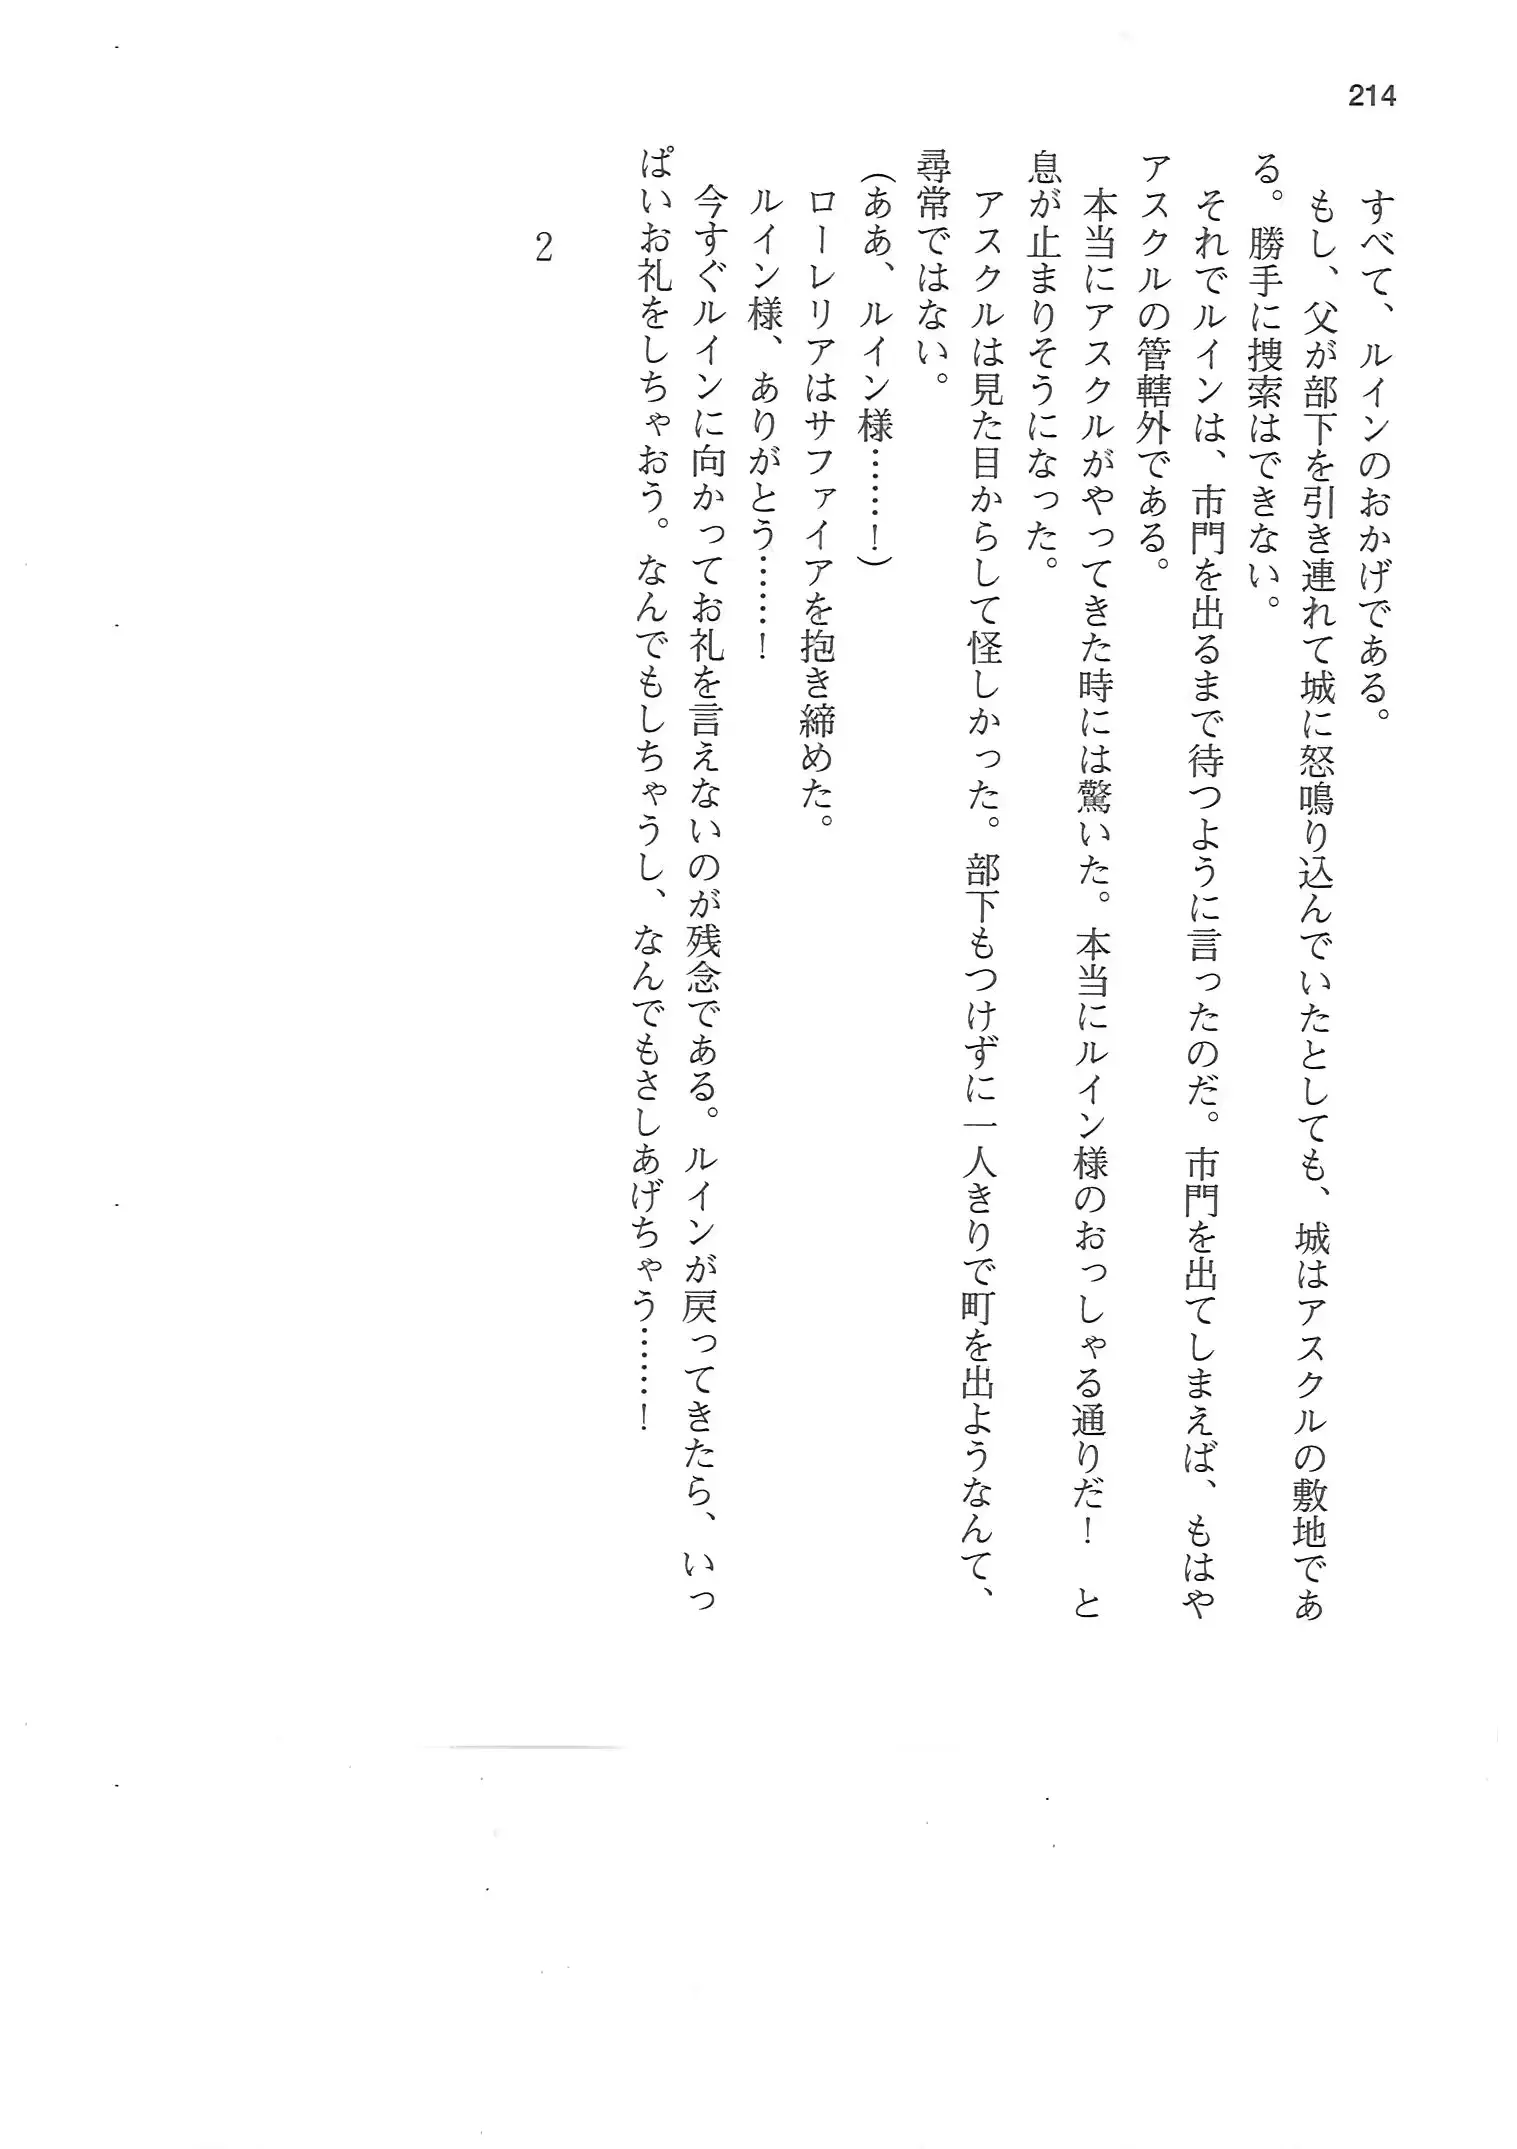 214
すべて、ルインのおかげである。
もし、父が部下を引き連れて城に怒鳴り込んでいたとしても、城はアスクルの敷地であ
る。勝手に捜索はできない。
それでルインは、市門を出るまで待つように言ったのだ。市門を出てしまえば、もはや
アスクルの管轄外である。
本当にアスクルがやってきた時には驚いた。本当にルイン様のおっしゃる通りだ！　と
息が止まりそうになった。
アスクルは見た目からして怪しかった。部下もつけずに一人きりで町を出ようなんて、
尋常ではない。
（ああ、ルイン様……！）
ローレリアはサファイアを抱き締めた。
ルイン様、ありがとう……！
今すぐルインに向かってお礼を言えないのが残念である。ルインが戻ってきたら、いっ
ぱいお礼をしちゃおう。なんでもしちゃうし、なんでもさしあげちゃう……！
2